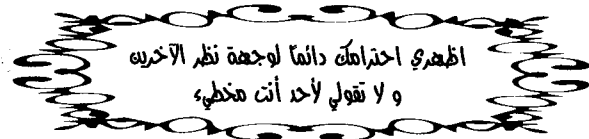 اظهري احترامك دائماً لوجهة نظر الآخرين
و لا تقولي لأحد أنت مخطيء